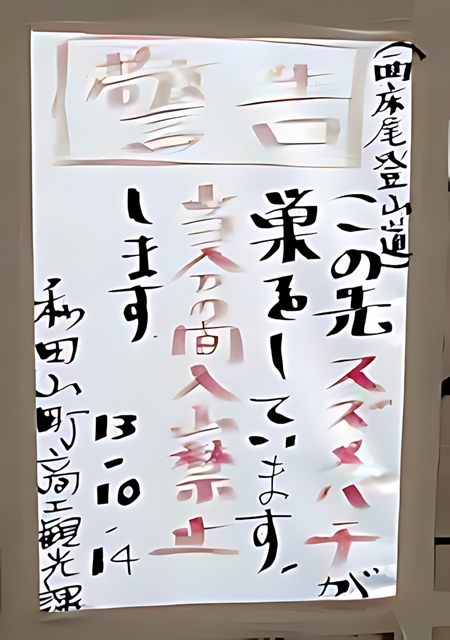 警告
(西床尾登山道)
この先スズメバチが
巣をしています。
当分の間入山禁止
します
13-10-14
和田山町商工観光課